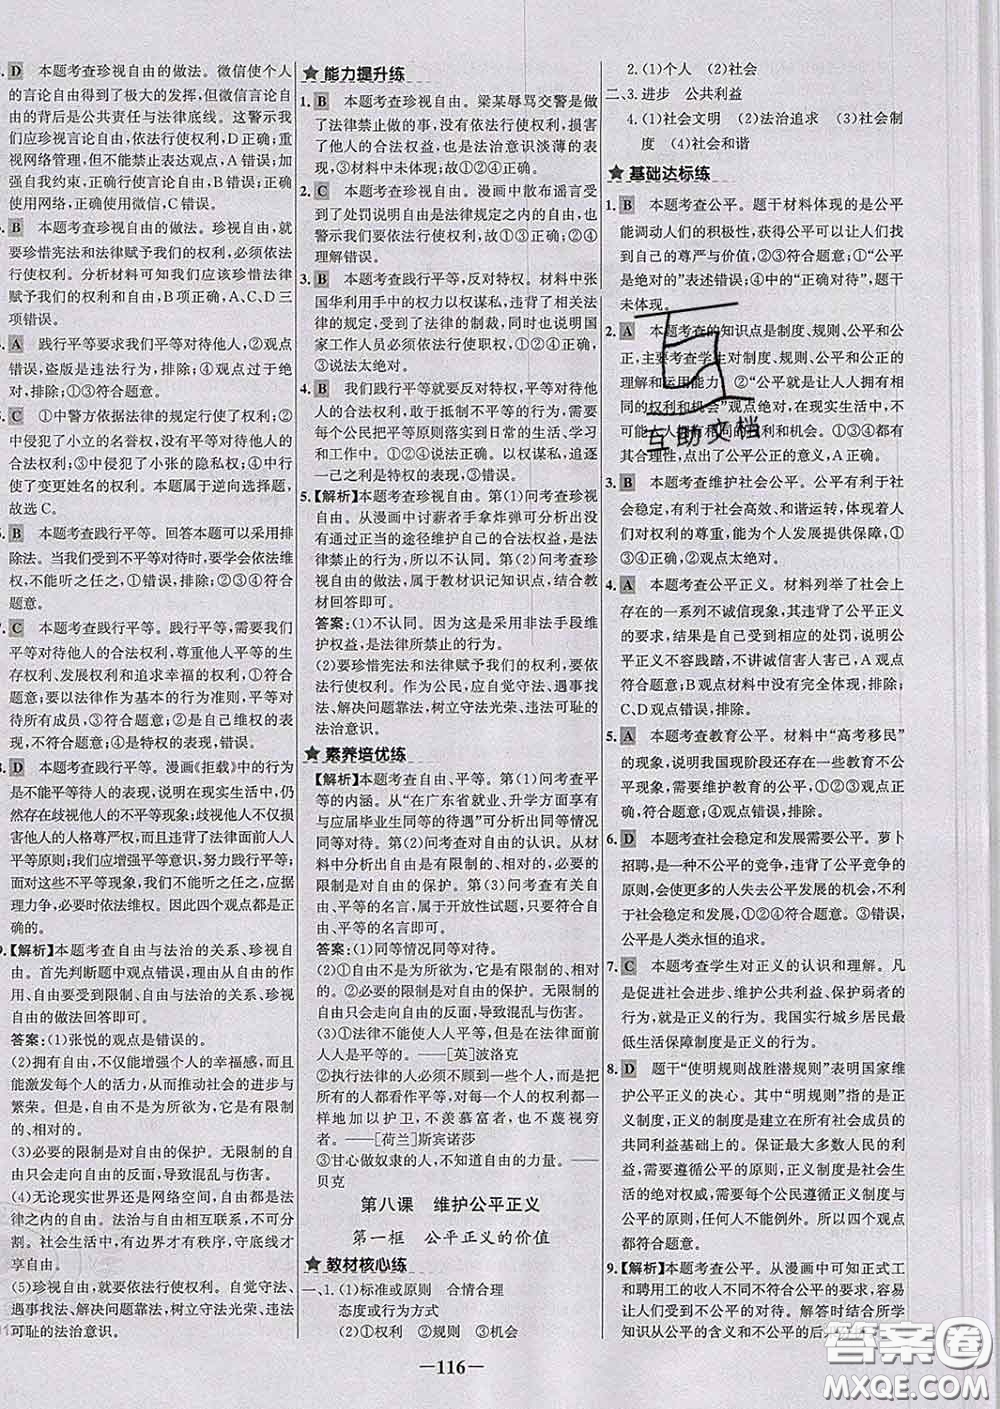 D 本题考查珍视自由的做法。微信使个人
的言论自由得到了极大的发挥,但微信言论自
由的背后是公共责任与法律底线。这警示我
们应珍视自由,依法行使权利,D正确;重
视网络管理,但不能禁止表达观点,A错误;加
强自我约束,正确行使言论自由,B错误;正确
使用网络,正确使用微信,C错误。
B 本题考查珍视自由的做法。珍视自由,就
要珍惜宪法和法律赋予我们的权利,必须依法
行使权利。分析材料可知我们应该珍惜法律
赋予我们的权利和自由,B项正确,A、C、D三
项错误。
A 践行平等要求我们平等对待他人,②观点
错误,盗版是违法行为,排除;④观点过于绝
对,排除;①③符合题意。
C ①中警方依据法律的规定行使了权利;②中
侵犯了小立的名誉权,没有平等对待他人的合
法权利;③中侵犯了小张的隐私权;④中行使
了变更姓名的权利。本题属于逆向选择题,
故选C。
B 本题考查践行平等。回答本题可以采用排
除法。当我们受到不平等对待时,要学会依法维
权,不能听之任之,①错误,排除;②③④符合
题意。
C 本题考查践行平等。践行平等,需要我们
平等对待他人的合法权利,尊重他人平等的生
存权利、发展权利和追求幸福的权利,①符合
题意;需要以法律作为基本的行为准则,平等对
待所有成员,②③符合题意;②是自己维权的表
现,不符合题意;④是特权的表现,排除。
D 本题考查践行平等。漫画《拒载》中的行为
是不能平等待人的表现。在现实生活中,仍
然存在歧视他人的不平等现象;歧视他人不仅损
害他人的人格尊严权,而且违背了法律面前人人
平等原则;我们应增强平等意识,努力践行平等;
面对这些不平等现象,我们不能听之任之,应据
理力争,必要时依法维权。因此四个观点都是正
确的。
9.【解析】本题考查自由与法治的关系、珍视自
由。首先判断题中观点错误,理由从自由的作
用、自由是受到限制、自由与法治的关系、珍视
自由的做法回答即可。
答案:(1)张悦的观点是错误的。
(2)拥有自由,不仅能增强个人的幸福感,而且
能激发每个人的活力,从而推动社会的进步与
繁荣。但是,自由不是为所欲为,它是有限制
的、相对的。
(3)必要的限制是对自由的保护。无限制的自
由只会走向自由的反面,导致混乱与伤害。
(4)无论现实世界还是网络空间,自由都是法
律之内的自由。法治与自由相互联系,不可分
割。社会生活中自由才有秩序,守底线才
享自由。
(5)珍视自由,就要依法行使权利。自觉守法、
遇事找法、解决问题靠法,树立守法光荣、违法
可耻的法治意识。
★能力提升练
1. B 本题考查珍视自由。梁某辱骂交警是做
了法律禁止做的事,没有履行法定义务,侵害
了他人的合法权益,也是法治意识淡薄的表
现;③材料中未体现;故①②④正确。
2. C 本题考查珍视自由。漫画中散布谣言受
到了处罚说明自由是法律规定之内的自由,也
警示我们要依法行使权利,①③正确;②④
理解错误。
3. B 本题考查践行平等,反对特权。材料中张
国华利用手中的权力以权谋私,违背了相关法
律的规定,受到了法律的制裁,同时也说明国
家工作人员必须依法行使职权,①②④正确;
③说法过于绝对。
4. B 我们践行平等就要反对特权,平等对待他
人的合法权利,敢于抵制不平等的行为,需要
每个公民把平等原则落实在日常的生活、学习
和工作中。①②④正确。以权谋私,追逐
一己之利是特权的表现;③错误。
5.【解析】本题考查珍视自由。第(1)问考查珍视
自由。从漫画中讨薪者手拿炸弹可分析出他
没有通过正当的途径维护自己的合法权益,是
法律禁止的行为,所以不认同。第(2)问考查珍
视自由的做法,属于教材识记知识点,结合教
材回答即可。
答案:(1)不认同。因为这是采用非法手段维
护权益,是法律所禁止的行为。
(2)要珍惜宪法和法律赋予我们的权利,要依
法行使权利。作为公民,应自觉守法、遇事找
法、解决问题靠法,树立守法光荣、违法可耻的
法治意识。
★素养培优练
【解析】本题考查自由、平等。第(1)问考查平等
的内涵。从“在广东省就业、升学方面享有
与应届毕业生同等的待遇”可分析出同等情况
同等对待。第(2)问考查对自由的认识。从材
料中分析出自由是有限制的、相对的,必要的
限制是对自由的保护。第(3)问考查有关自
由、平等的名言,属于开放性试题,只要符合
题意即可。
答案:(1)同等情况同等对待。
(2)①自由不是为所欲为,它是有限制的、相
对的。②必要的限制是对自由的保护。无限制的
自由只会走向自由的反面,导致混乱与伤害。
(3)①法律不能使人人平等,但是在法律面前
人人是平等的。——[英]波洛克
②执行法律的人必须不顾到一切以保护每一个
人,对每个人都一样,对所有的人的权利都一
样地加以护卫,不羡慕富者,也不蔑视穷
者。——[荷兰]斯宾诺莎
③甘心做奴隶的人,不知道自由的力量。——
贝克
第八课 维护公平正义
第一框 公平正义的价值
★教材核心练
一、1. (1)标准或原则 合情合理
态度或行为方式
(2)①权利 ②规则 ③机会
2. (1)个人 (2)社会
二、3. 进步 公共利益
4. (1)社会文明 (2)法治追求 (3)社会制
度 (4)社会和谐
★基础达标练
1. B 本题考查公平。题干材料体现的是公平
能调动人们的积极性,获得公平可以让人们感
受到自己的尊严与价值,②③符合题意;①“公平
是绝对的”表述错误;④中的“正确对待”,题干
未体现。
2. A 本题考查的知识点是制度、规则、公平和公
正,主要考查学生对制度、规则、公平和公正的
理解和运用能力。②“公平就是让人人拥有相
同的权利和机会”观点绝对,在现实生活中,不
可能人人拥有相同的权利和机会。①③④都
有其合理性,点出了公平公正的意义,A正确。
3. B 本题考查维护社会公平。公平有利于社
会稳定,有利于社会高效、和谐运转,体现着人
们对权利的尊重,能为个人发展提供保障,①
③④正确;②观点太绝对。
4. A 本题考查公平正义。材料列举了社会上
存在的一系列不诚信现象,其违背了公平正义
的要求,结果是自己受到相应的处罚,说明公平
正义不容践踏,不讲诚信害人害己,A观点
符合题意;B观点材料中没有完全体现,排除;
C、D观点错误,排除。
5. A 本题考查教育公平。材料中“高考移民”
的现象,说明我国现阶段还存在一些教育不公平
现象,需要维护教育的公平,①②③观点正
确,符合题意;④观点错误,排除。
6. D 本题考查社会稳定和发展需要公平。萝卜
招聘,是一种不公平的竞争,违背了公平竞争的
原则,会使更多的人失去公平发展的机会,不利
于社会稳定和发展,①②④符合题意;③错误,
公平是人类永恒的追求。
7. C 本题考查学生对正义的认识和理解。凡
是促进社会进步、维护公共利益、保护弱者的
行为,都是正义的行为。我国实行城乡居民最
低生活保障制度是正义的行为。
8. D 题干“使明规则战胜潜规则”表明国家维
护公平正义的决心。其中“明规则”指的是正
义制度、规则,正义制度是建立在所有社会成员的
共同利益基础上的。保证最大多数人民的利
益,需要遵循公平的原则,正义代表着社会生活
的绝对权威,需要每个公民遵循正义制度,遵循
正义原则,任何人不能不例外。所以四个观点
都符合题意。
9.【解析】本题考查公平。从漫画中可知正式工
和聘用工的收入悬殊,不公平。企业容易导
致让人们受到不公平的对待。解答时结合所学
知识从公平的含义和不公平的后
—116—
互助文档
答案圈
MXQE.COM